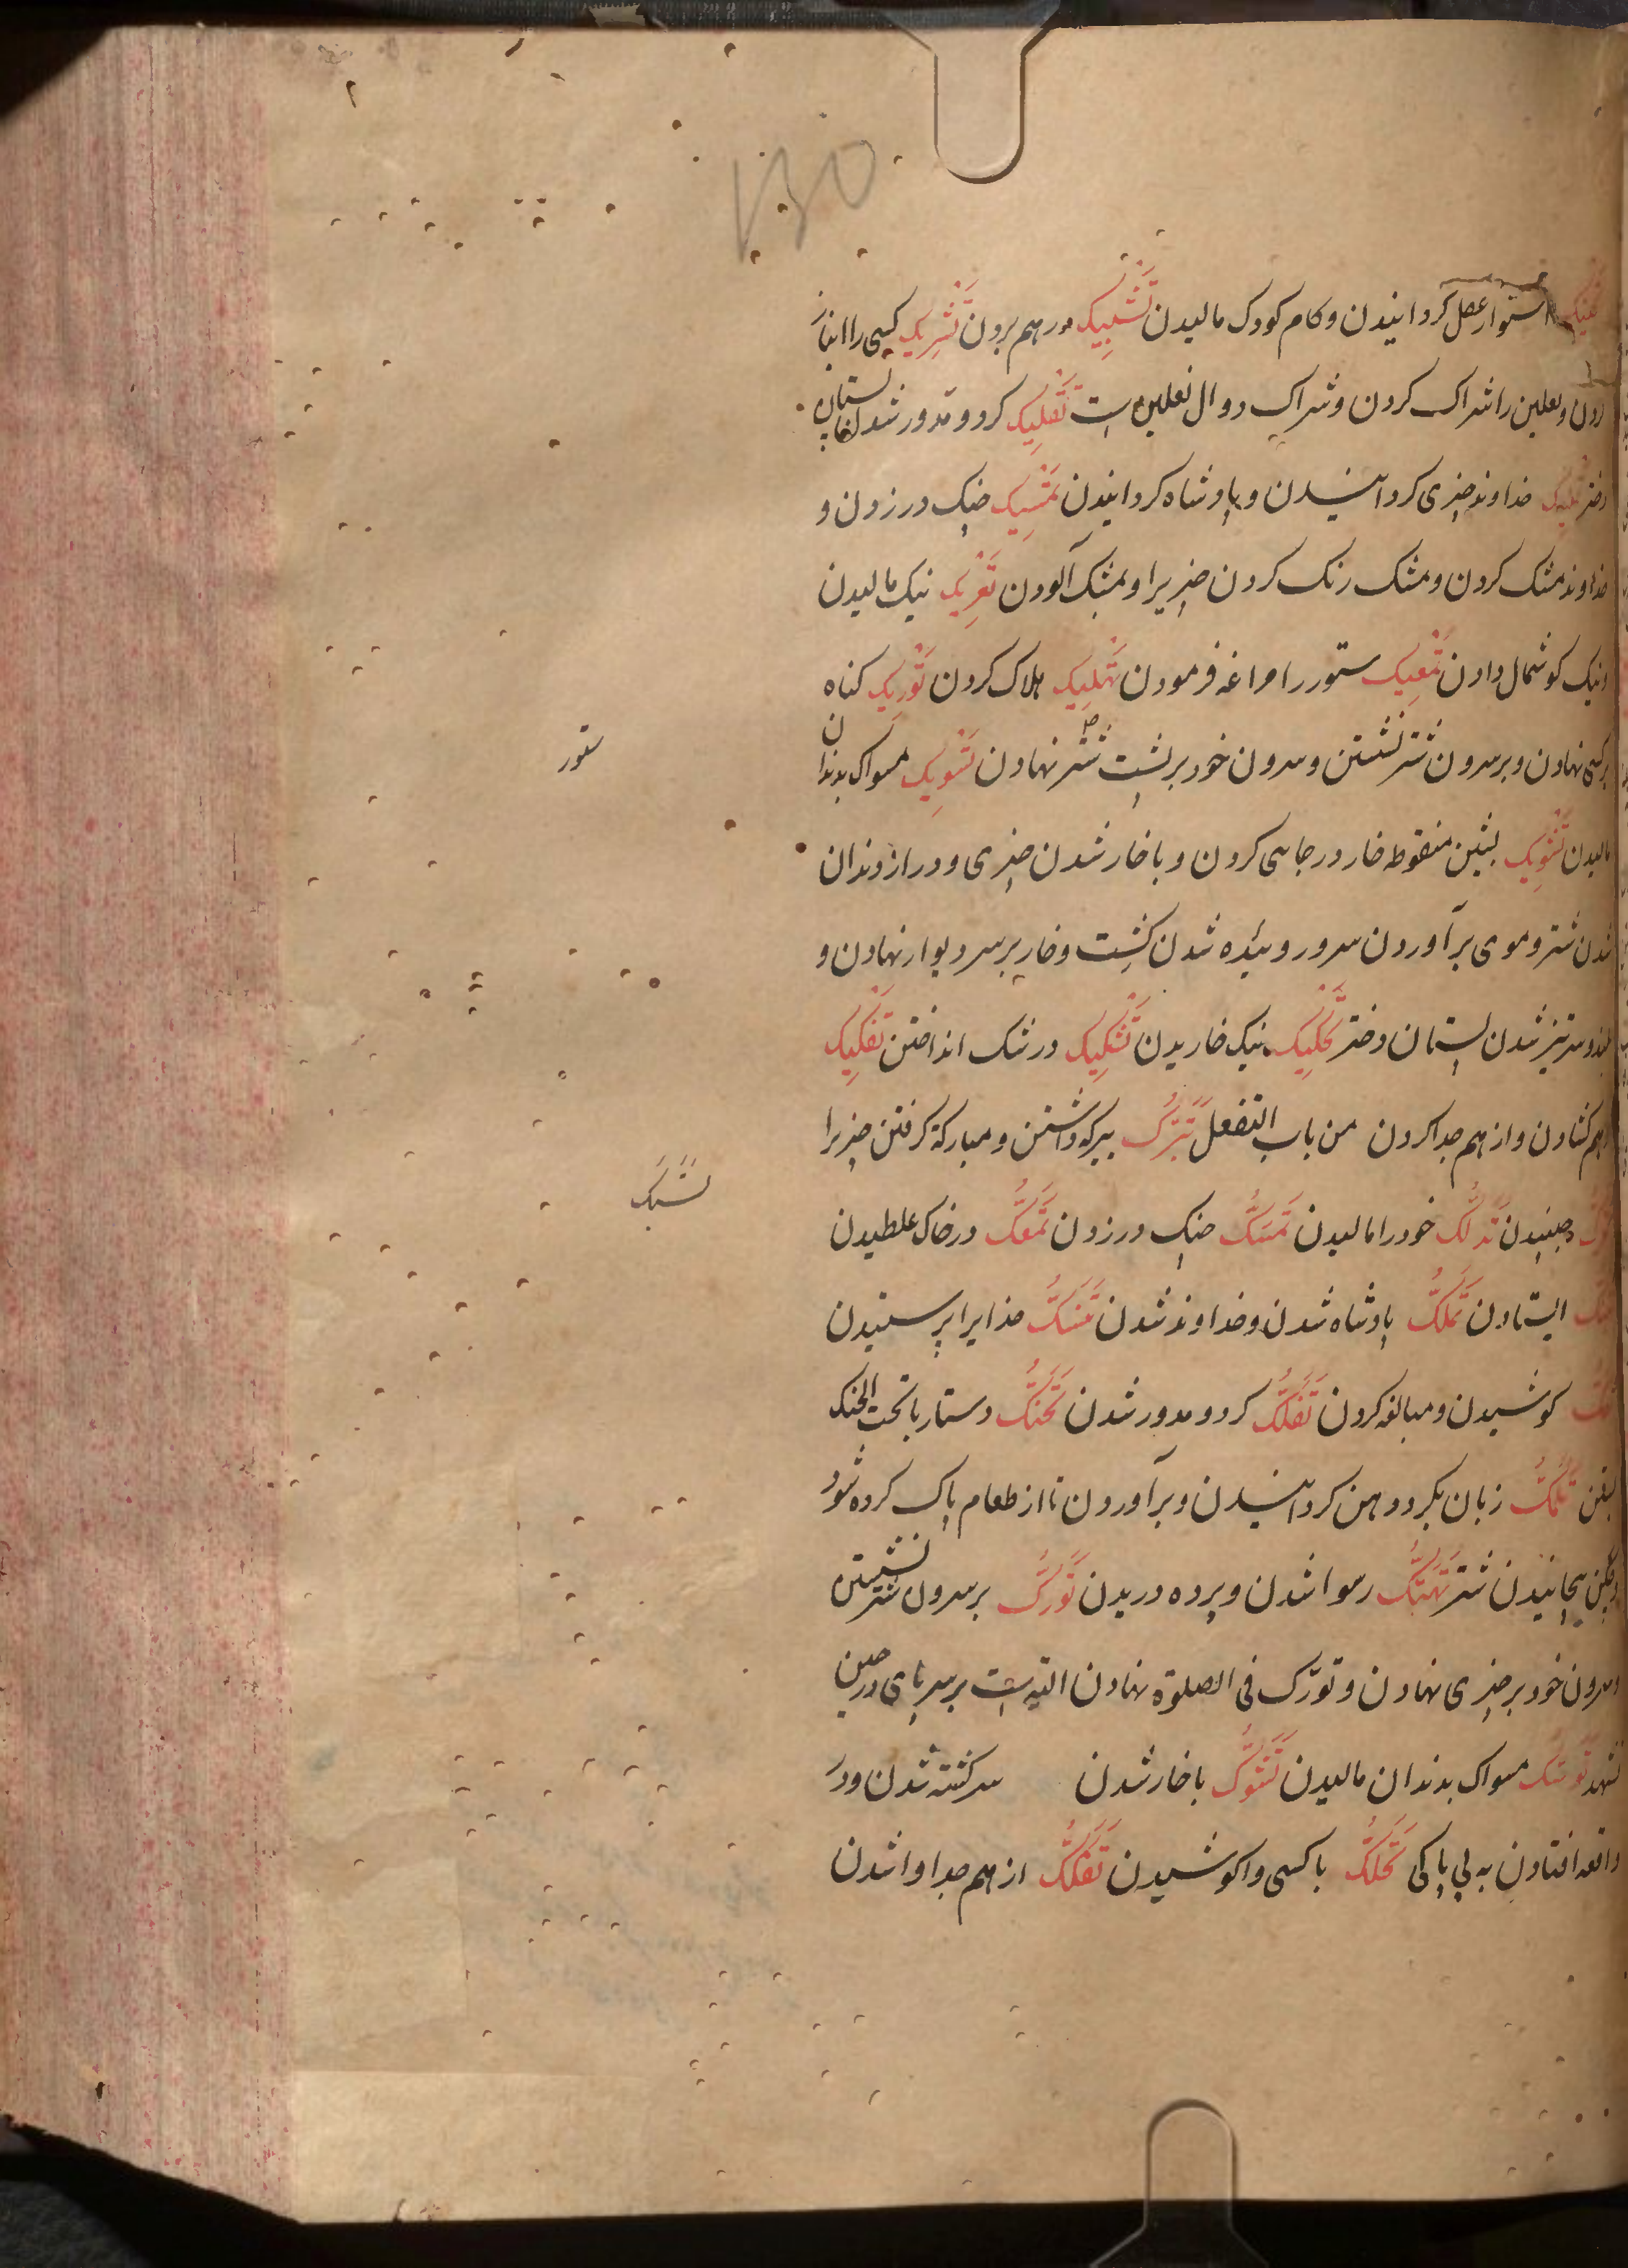 استوار عقل کردانیدن و کام کودک مالیدن تَشْبِیک در هم بردن تَشْرِیک کسی را انباز
کردن و نعلین را شراک کردن و شراک دوال نعلین است تَفْلِیک کرد و مدور شدن پستان
دختر تملیک خداوند چیزی کردانیدن و پادشاه کردانیدن تَمْسِیک چنک در زدن و
خداوند مشک کردن و مشک رنک کردن چیزیرا و بمشک آلودن تَعْرِیک نیک مالیدن
و نیک کوشمال دادن تَمْعِیک ستور را مراغه فرمودن تَهْلِیک هلاک کردن تَوْرِیک کناه
بر کسی نهادن و بر سرون شتر نشستن و سرون خود بر پشت شتر نهادن تَسْوِیک مسواک بدندان
مالیدن تَشْوِیک بشین منقوطه خار در جایی کردن و با خار شدن چیزی و دراز دندان
شدن شتر و موی برآوردن سر و روییده شدن کشت و خار بر سر دیوار نهادن و
سرتیز شدن پستان دختر تَحْکِیک نیک خاریدن تَشْکِیک در شک انداختن تَفْکِیک
از هم کشادن و از هم جدا کردن من باب التفعل تَبَرُّک ببرکه داشتن و مبارک گرفتن چیزیرا
جنبیدن تَدَلُّک خود را مالیدن تَمَسُّک چنک در زدن تَمَعُّک در خاک غلطیدن
ایستادن تَمَلُّک پادشاه شدن و خداوند شدن تَنَسُّک خدایرا پرستیدن
کوشیدن و مبالغه کردن تَفَلُّک کرد و مدور شدن تَحَنُّک دستار با تحت الحنک
بستن تَلَمُّک زبان بکرد دهن کردانیدن و برآوردن تا از طعام پاک کرده شود
پیچانیدن شتر تَهَتُّک رسوا شدن و پرده دریدن تَوَرُّک بر سرون شتر نشستن
و سرون خود بر چیزی نهادن و تورّک فی الصلوة نهادن الیه است بر سر پای در حین
تشهد تَسَوُّک مسواک بدندان مالیدن تَشَوُّک با خار شدن سرکشته شدن و در
واقعه افتادن به بی پاکی تَحَکُّک با کسی واکوشیدن تَفَکُّک از هم جدا وا شدن
ستور
تَشَبُّک